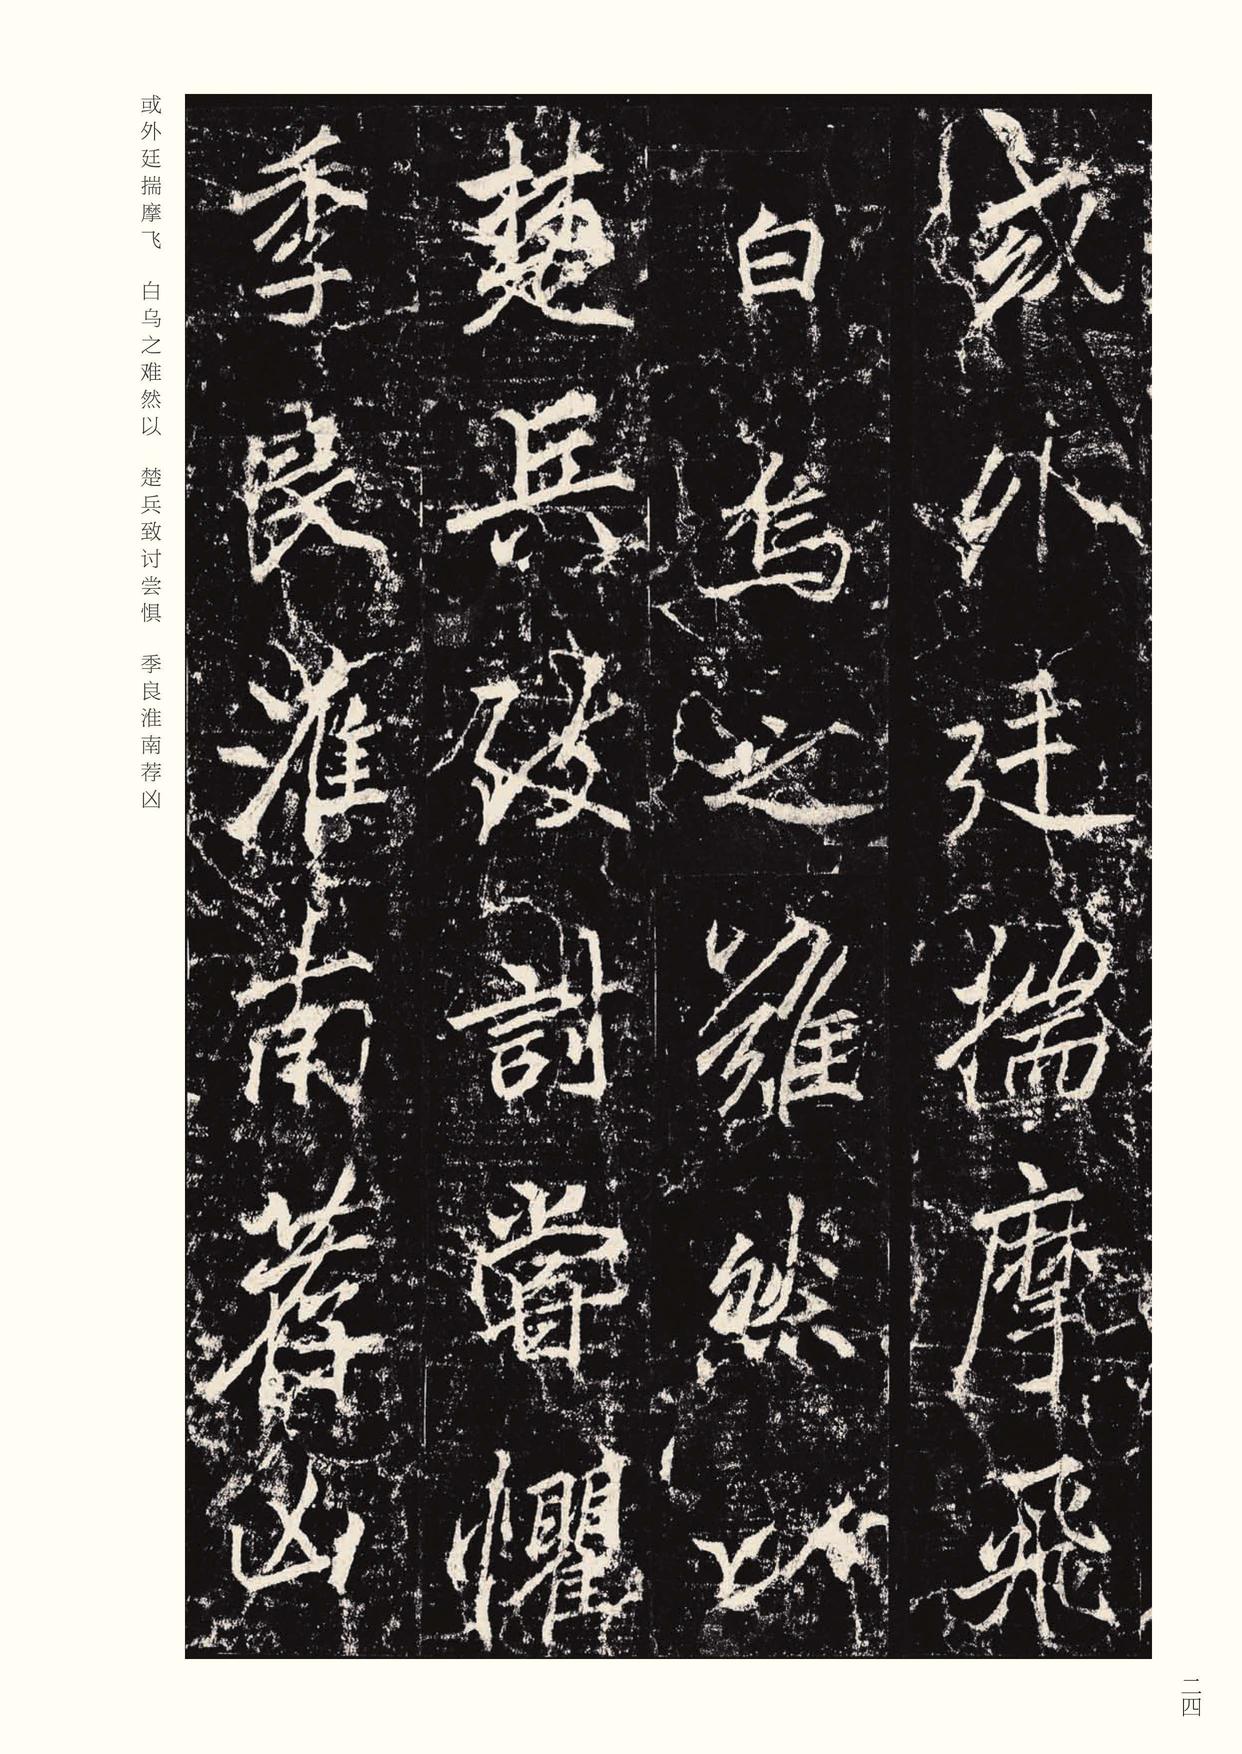 或外廷揣摩飛
白烏之難然以
楚兵致討嘗懼
季良淮南荐凶
或外廷揣摩飞　白乌之难然以　楚兵致讨尝惧　季良淮南荐凶
二四